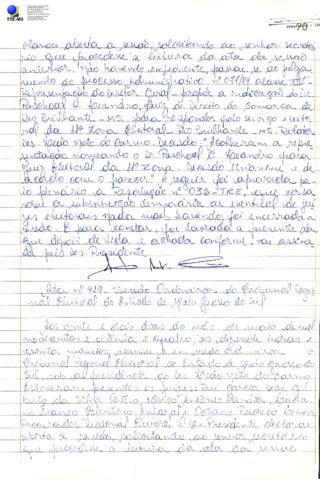 TRE-MS
70
clarou aberta a sessão, solicitando ao senhor secretá-
rio que procedesse a leitura da ata da sessão
anterior. Não havendo expediente, passou-se ao julga-
mento do processo administrativo nº 077/84 classe
Representação do Diretor Geral - propõe a indicação do Dr.
Paschoal C. Leandro, Juiz de Direito da comarca de
Rio Brilhante - MS, para responder pelo serviço eleito-
ral da 11ª Zona Eleitoral - Rio Brilhante - MS. Relator
Des. Leão Neto do Carmo. Decisão: "Acolheram a repre-
sentação nomeando o Dr. Paschoal C. Leandro para
Juiz Eleitoral da 11ª Zona. Decisão Unânime", e de
acordo com o parecer. A seguir foi aprovada pe-
lo plenário a Resolução nº 033-TRE, que versa
sobre a substituição temporária ou eventual de juí-
zes eleitorais. Nada mais havendo, foi encerrada a
sessão. E para constar, foi lavrada a presente ata,
que depois de lida e achada conforme, vai assina-
da pelo Des. Presidente.
Ata nº 429. Sessão Ordinária do Tribunal Regio-
nal Eleitoral do Estado de Mato Grosso do Sul
Aos vinte e dois dias do mês de maio de mil
novecentos e oitenta e quatro, às dezessete horas e
trinta minutos, reuniu-se em sessão ordinária o
Tribunal Regional Eleitoral do Estado de Mato Grosso do
Sul, sob a presidência do Des. Leão Neto do Carmo.
Estiveram presentes os juízes:
Procurador Regional Eleitoral. O Sr. Presidente declarou
aberta a sessão, solicitando ao senhor secretário
que procedesse a leitura da ata da sessão